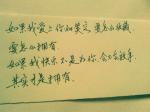 如果我爱上你的笑容，要怎么收藏，
要怎么拥有。
如果我快乐不是为你，会不会放手，
其实才是拥有。